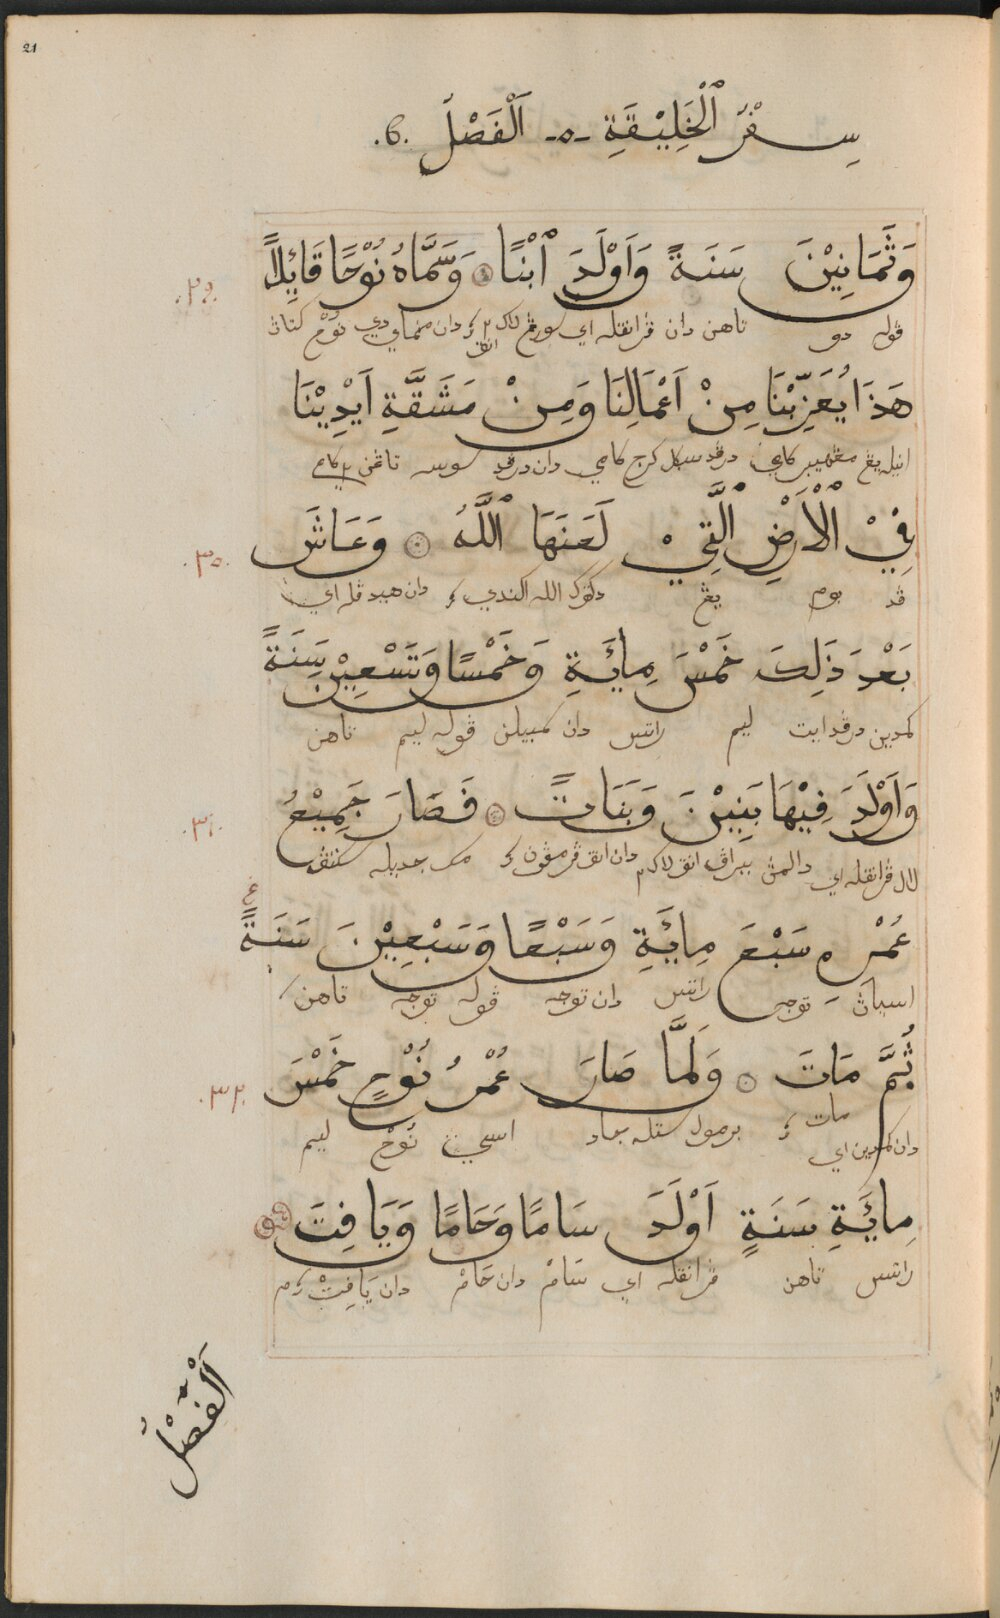 21
سِفْرُ ٱلْخَلِيْقَةِ -٥- اَلْفَصْلُ .6.
وَثَمَانِيْنَ سَنَةً وَاَوْلَدَ ٱبْنًا وَسَمَّاهُ نُوْحًا قَائِلًا
.٢٩.
ڤوله دو تاهن دان ڤرانقله اي سورڠ لاكي٢ دان منماي دي نوح كتاڽ
هَذَا يُعَزِّيْنَا مِنْ اَعْمَالِنَا وَمِنْ مَشَقَّةِ اَيْدِيْنَا
انيله يڠ مڠهيبر كامي درڤد سكل كرج كامي دان درڤد سوسه تاڠن كامي
فِيْ ٱلْاَرْضِ ٱلَّتِيْ لَعَنَهَا ٱللَّهُ وَعَاشَ
.٣٠.
ڤد بوم يڠ دكوتك الله اكندي دان هيدڤله اي
بَعْدَ ذَلِكَ خَمْسَ مِائَةِ وَخَمْسًا وَتَسْعِيْنَ سَنَةً
كمدين درڤد ايت ليم راتس دان سمبيلن ڤوله ليم تاهن
وَاَوْلَدَ فِيْهَا بَنِيْنَ وَبَنَاتً فَصَارَ جَمِيْعُ
.٣١.
لال ڤرانقله اي دالمڽ ببراڤ انق لاكي دان انق ڤرمڤون مك جديله سكنڤ
عُمْرِهِ سَبْعَ مِائَةِ وَسَبْعًا وَسَبْعِيْنَ سَنَةً
اسياڽ توجه راتس دان توجه ڤوله توجه تاهن
ثُمَّ مَاتَ وَلَمَّا صَارَ عُمْرُ نُوْحٍ خَمْسَ
.٣٢.
دان كمدين اي مات برمول ستله اسي نوح ليم
مِائَةِ سَنَةٍ اَوْلَدَ سَامًا وَحَامًا وَيَافِتَ
راتس تاهن ڤرانقله اي سَامْ دان حَامْ دان يَافِتْ
اَلْفَصْلُ